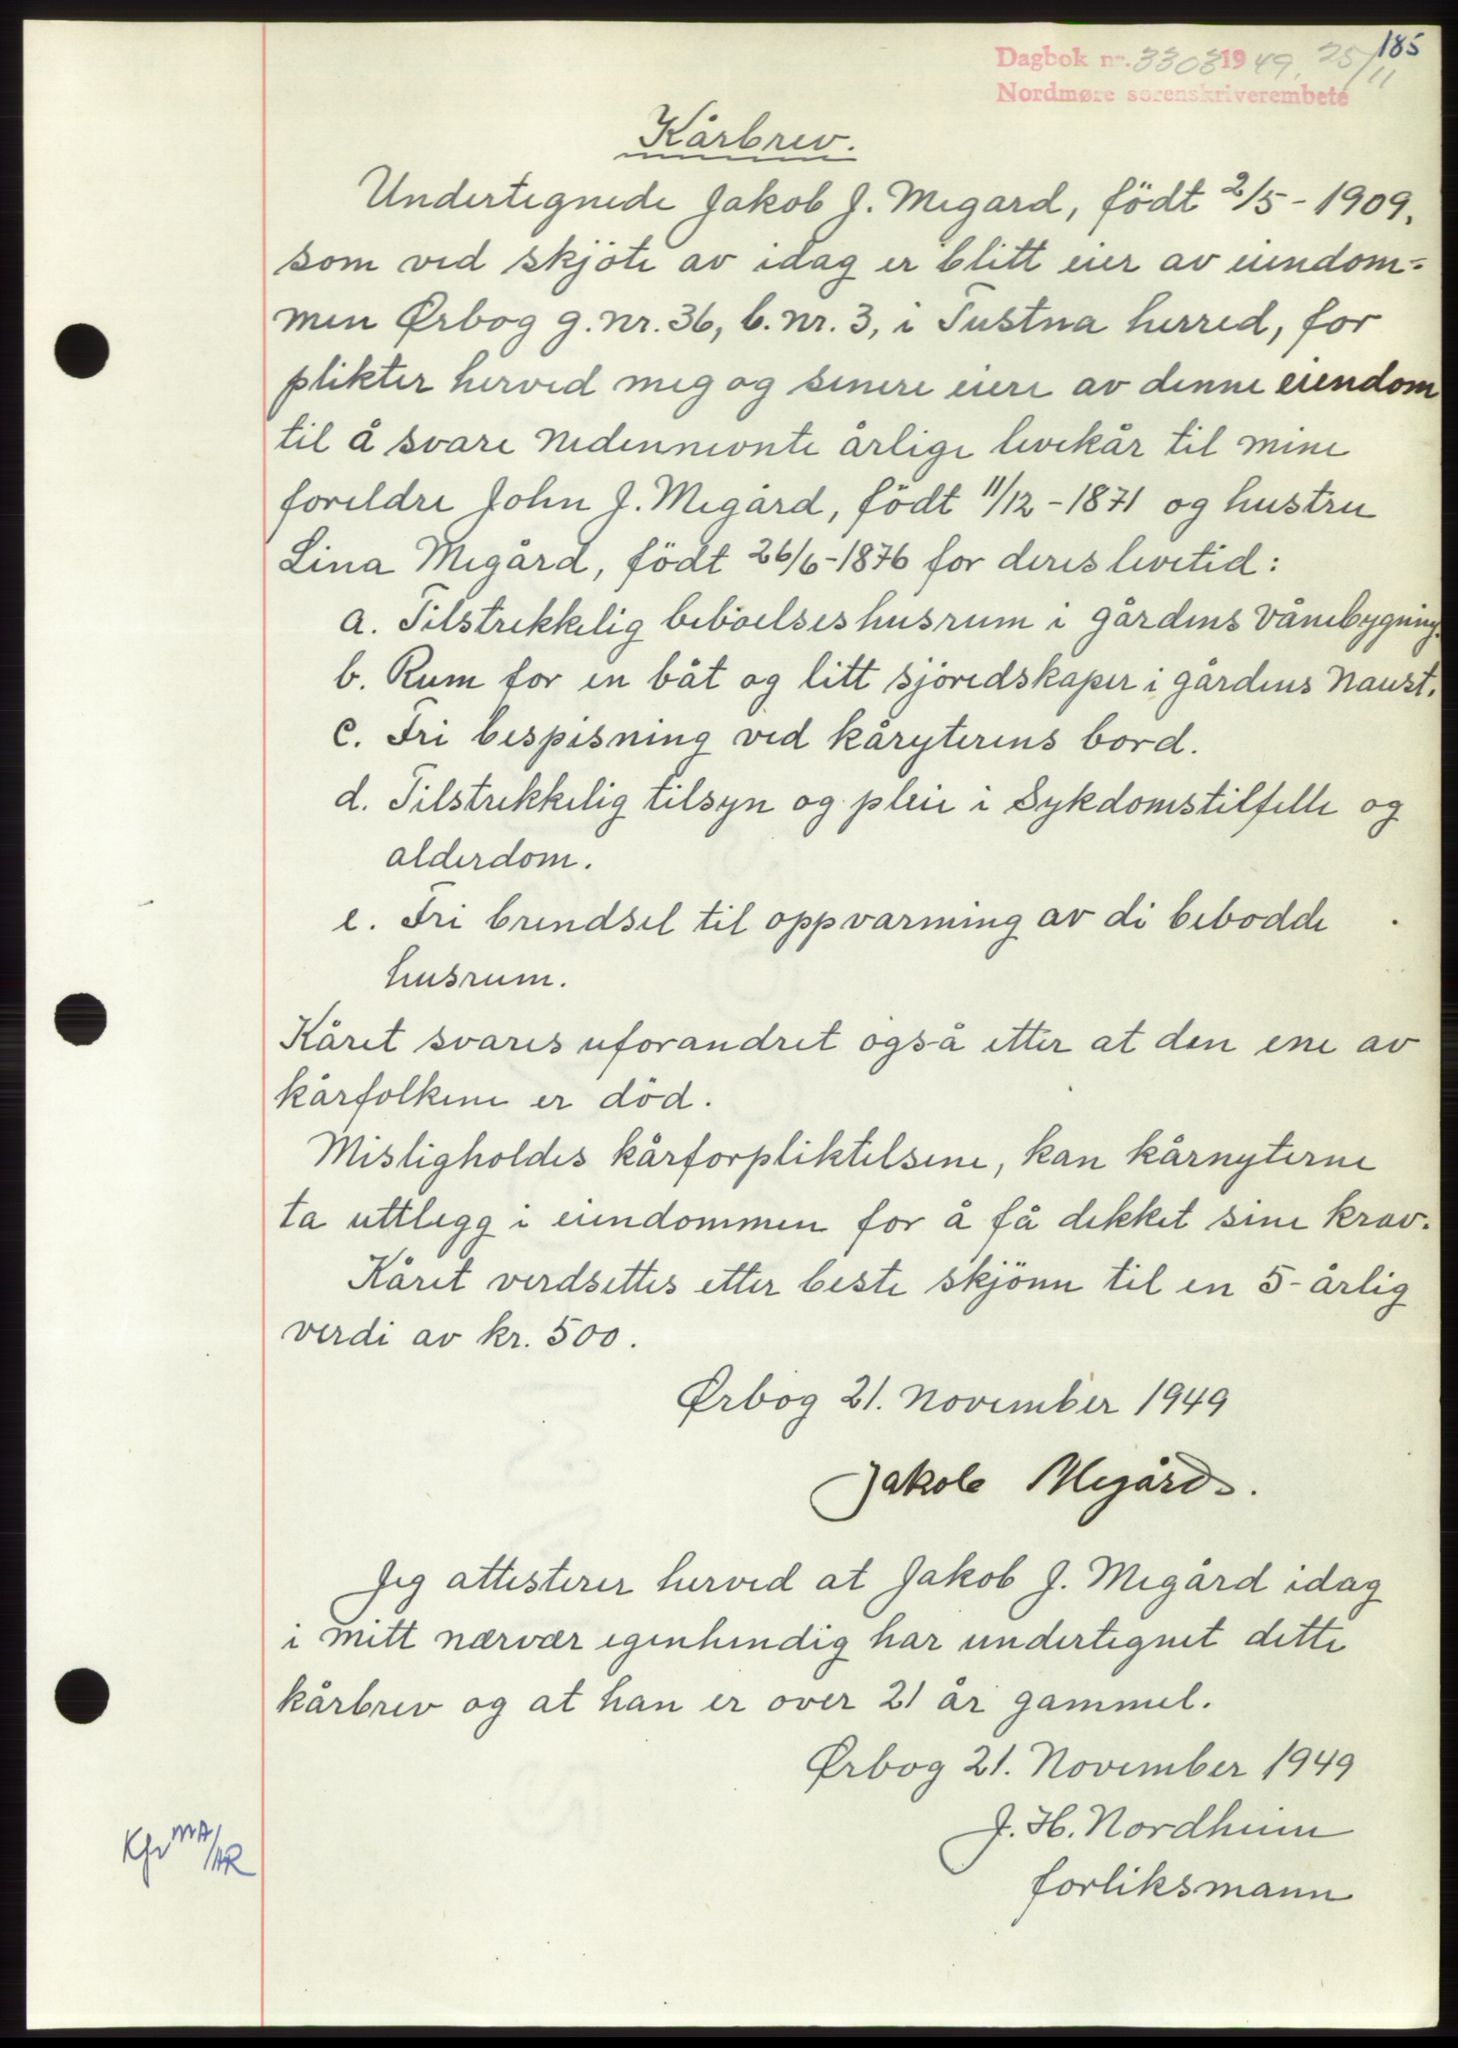 185
Dagbok nr. 3303 1949, 25/11
Nordmøre sorenskriverembete
Kårbrev.
Undertegnede Jakob J. Megard, födt 2/5-1909,
som ved skjöte av idag er blitt eier av eiendom-
men Ørbog g.nr. 36, b.nr. 3, i Tustna herred, for
plikter herved meg og senere eiere av denne eiendom
til å svare nedennevnte årlige levekår til mine
foreldre John J. Megård, födt 11/12-1871 og hustru
Lina Megård, födt 26/6-1876 for deres levetid:
a. Tilstrekkelig beböelseshusrum i gårdens vånebygning.
b. Rum for en båt og litt sjöredskaper i gårdens naust.
c. Fri bespisning ved kåryterens bord.
d. Tilstrekkelig tilsyn og pleie i Sykdomstilfelle og
alderdom.
e. Fri brendsel til oppvarming av de bebodde
husrum.
Kåret svares uforandret også etter at den ene av
kårfolkene er död.
Misligholdes kårforpliktelsene, kan kårnyterne
ta uttlegg i eiendommen for å få dekket sine krav.
Kåret verdsettes etter beste skjönn til en 5-årlig
verdi av kr. 500.
Ørbog 21. november 1949
Jakob Megård.
Jeg attesterer herved at Jakob J. Megård idag
i mitt nærvær egenhendig har undertegnet dette
kårbrev og at han er over 21 år gammel.
Ørbog 21. November 1949
J. H. Nordheim
forliksmann
Kfr MA/HR